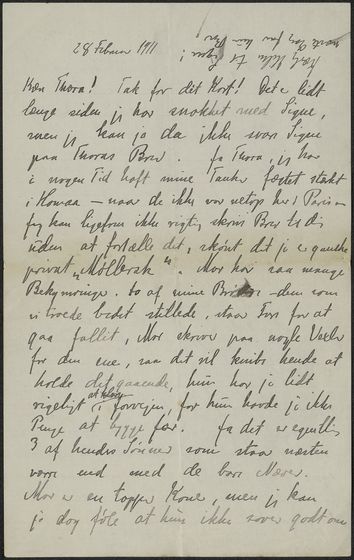 28 Februar 1911
Kæn Thora! Tak for dit Kort! Det e lidt
længe siden jeg har snakket med Signe,
men jeg kan jo da ikke svar Signe
paa Thoras Brev. Ja Thora, jeg har
i nogen Tid haft mine Tanker fæstet stærkt
i Howaa — naar de ikke var netop her i Paris —
jeg kan ligefrem ikke rigtig skrive Brev til dig
uden at fortælle det, skønt det jo er ganske
privat "Möllersk". Mor har saa mange
Bekymringer. to af mine Brødre — dem som
vi troede bedst stillede, staar Fors for at
gaa fallit, Mor skrev paa nogle Vexler
for den ene, saa det vil knibe hende at
holde det gaaende, hun har jo lidt
rigeligt at klare i forvejen, for hun havde jo ikke
Penge at bygge for. Ja det er egentlig
3 af hendes Sønner som staar næsten
værre end med de bare Næver.
Mor er en tapper Kone, men jeg kan
jo dog føle at hun ikke sover godt om